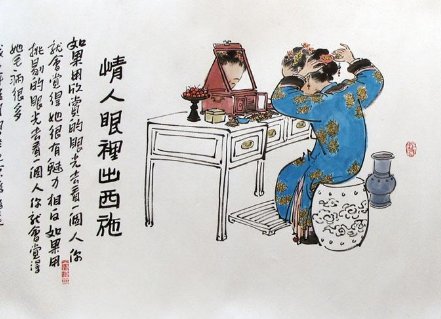 情人眼裡出西施
如果用欣賞的眼光去看一個人你
就會覺得她很有魅力相反如果用
挑剔的眼光去看一個人你就會覺得
她毛病很多